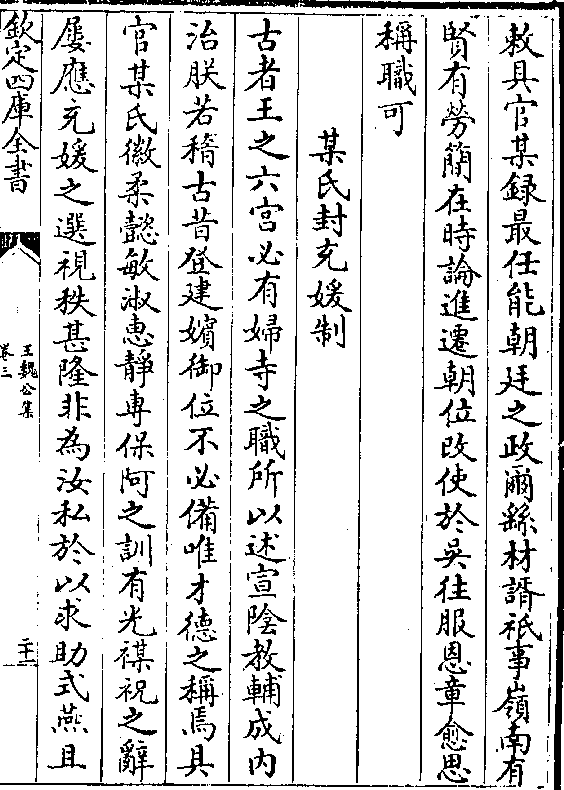 敕具官某録最任能朝廷之政爾繇材諝祇事嶺南有
賢有勞簡在時論進遷朝位改使於吳往服恩章愈思
稱職可
某氏封充媛制
古者王之六宮必有婦寺之職所以述宣陰教輔成内
治朕若稽古昔登建嬪御位不必備唯才德之稱焉具
官某氏徽柔懿敏淑惠靜專保阿之訓有光禖祝之辭
屢應充媛之選視秩甚隆非為汝私於以求助式燕且
欽定四庫全書
王魏公集
卷三
二十一